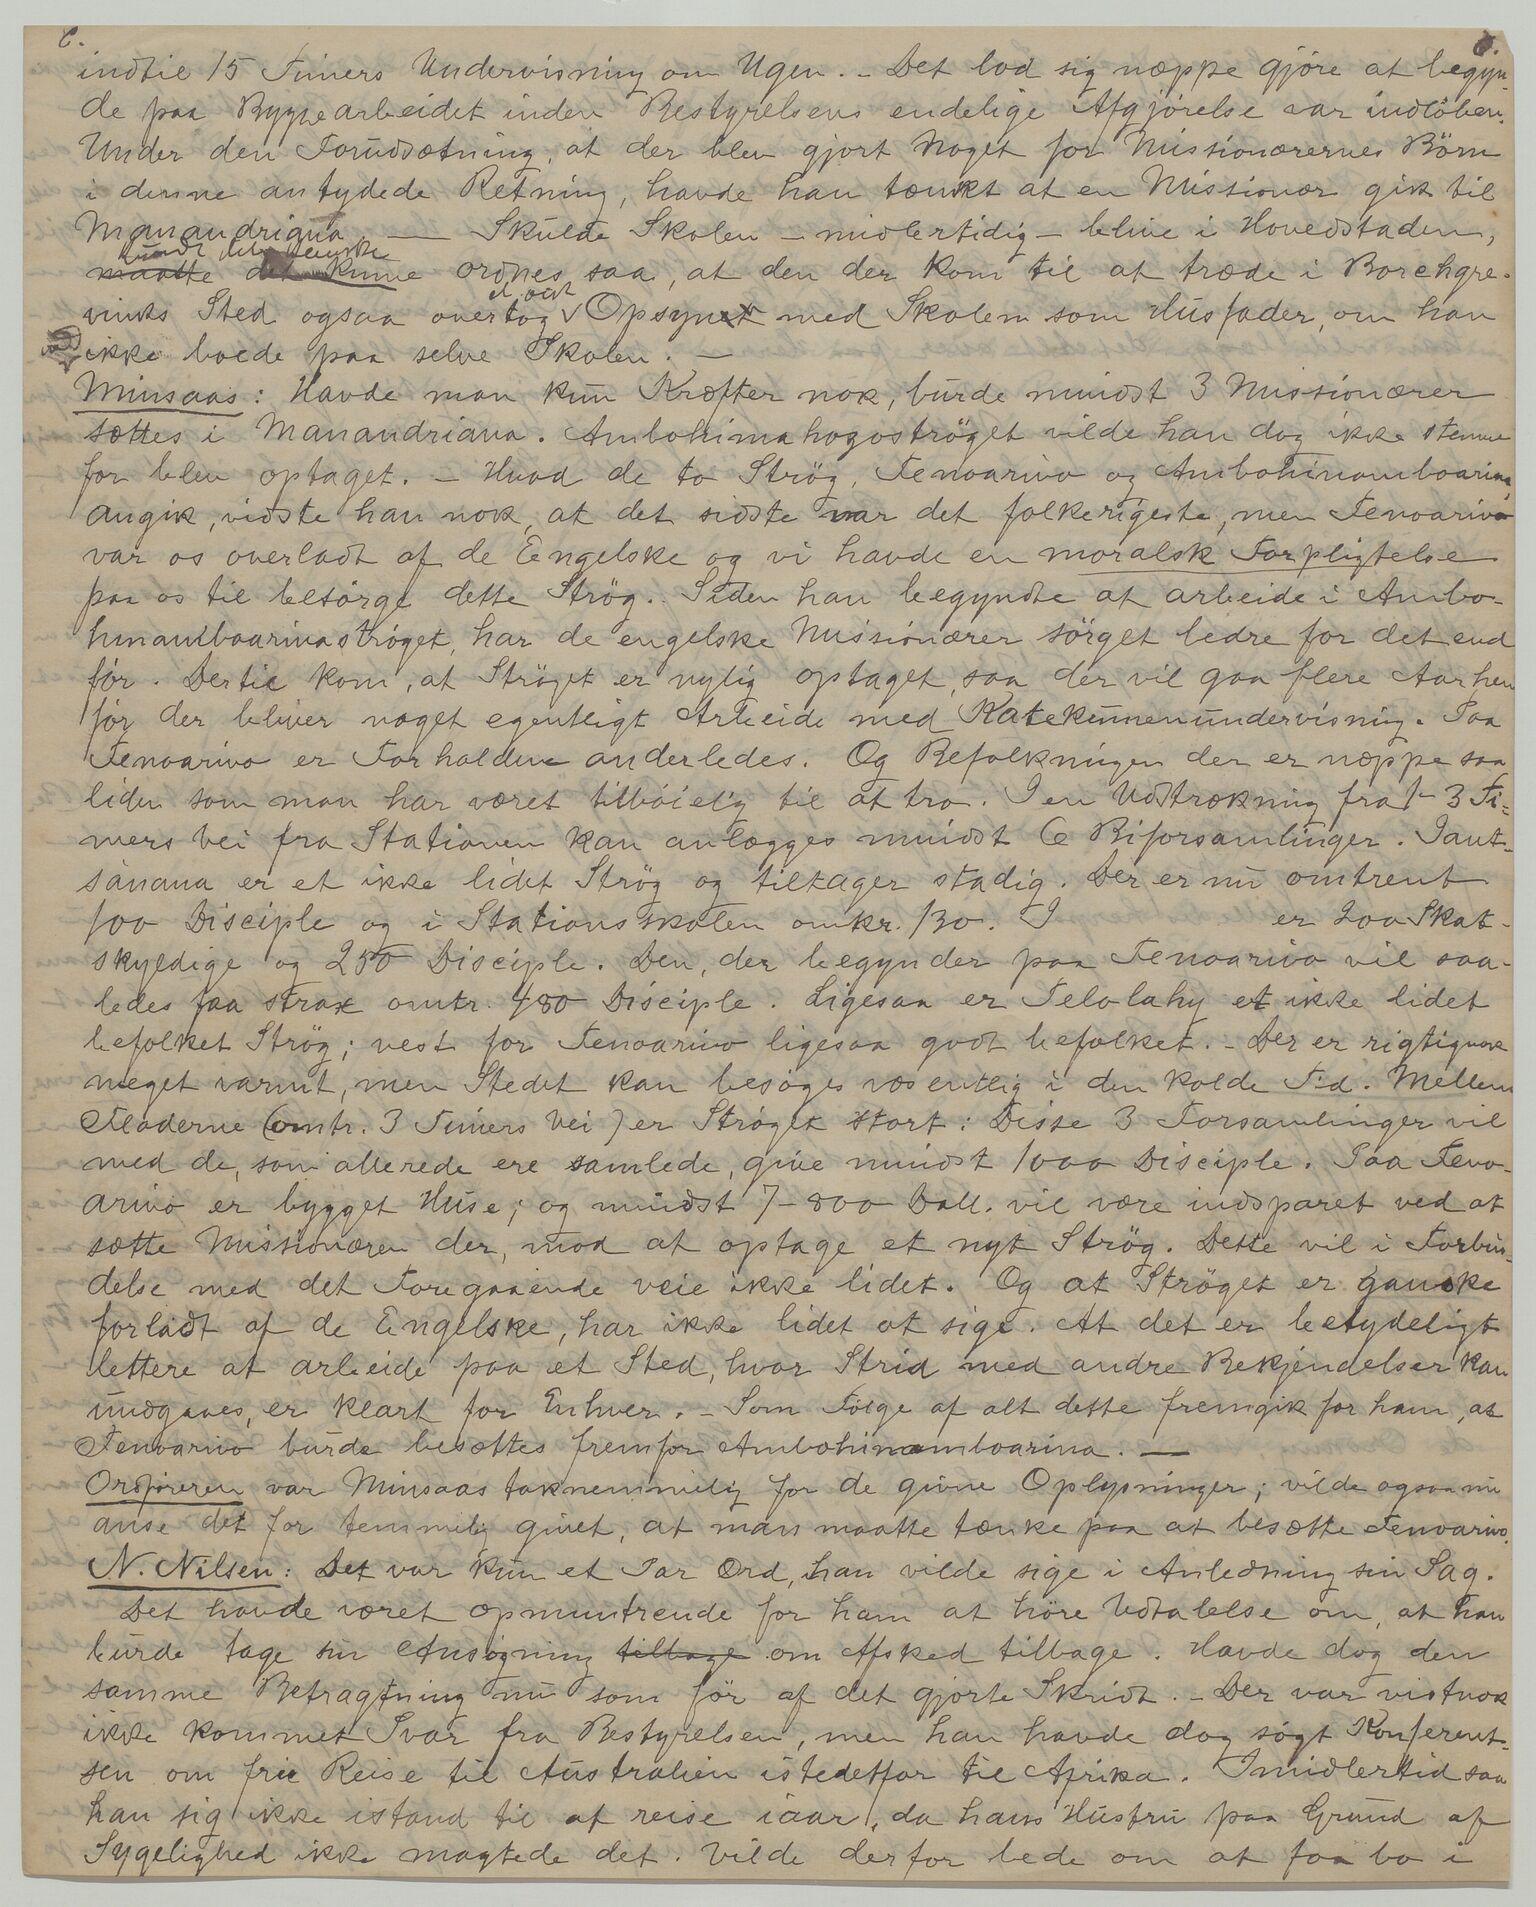 6. 6.
indtil 15 Timers Undervisning om Ugen. - Det lod sig næppe gjøre at begyn-
de paa Byggearbeidet inden Bestyrelsens endelige Afgjörelse var indlöben.
Under den Forudsætning, at der blev gjort Noget for Missionærernes Börn
i denne antydede Retning, havde han tænkt at en Missionær gik til
Manandriana. — Skulde Skolen - midlertidig - blive i Hovedstaden,
burde det kanske
maatte det kunne ordnes saa, at den der kom til at træde i Borchgre-
vinks Sted ogsaa overtog et vist Opsyn med Skolen som Husfader, om han
ikke boede paa selve Skolen. —
Minsaas: Havde man kun Kræfter nok, burde mindst 3 Missionærer
sættes i Manandriana. Ambohimahagoströget vilde han dog ikke stemme
for blev optaget. - Hvad de to Strög, Fenoarivo og Ambohinamboarina
angik, vidste han nok, at det sidste var det folkerigeste, men Fenoarivo
var os overladt af de Engelske og vi havde en moralsk Forpligtelse
paa os til besörge dette Strög. Siden han begyndte at arbeide i Ambo-
hinamboarinaströget, har de engelske Missionærer sörget bedre for det end
för. Dertil kom, at Ströget er nylig optaget, saa der vil gaa flere Aar hen
för der bliver noget egentligt Arbeide med Katekumenundervisning. Paa
Fenoarivo er Forholdene anderledes. Og Befolkningen der er næppe saa
liden som man har været tilböielig til at tro. I en Udstrækning fra 1-3 Ti-
mers Vei fra Stationen kan anlægges mindst 6 Biforsamlinger. Iant-
sanana er et ikke lidet Strög og tiltager stadig. Der er nu omtrent
100 Disciple og i Stationsskolen omkr. 130. I er 200 Skat-
skyldige og 250 Disciple. Den, der begynder paa Fenoarivo vil saa-
ledes faa strax omtr. 480 Disciple. Ligesaa er Telolahy et ikke lidet
befolket Strög; vest for Fenoarivo ligesaa godt befolket. - Der er rigtignok
meget varmt, men Stedet kan besöges væsentlig i den kolde Tid. Mellem
Floderne (omtr. 3 Timers Vei) er Ströget stort: Disse 3 Forsamlinger vil
med de, som allerede ere samlede, give mindst 1000 Disciple. Paa Feno-
arivo er bygget Huse; og mindst 7-800 Doll. vil være indsparet ved at
sætte Missionæren der, mod at optage et nyt Strög. Dette vil i Forbin-
delse med det Foregaaende veie ikke lidet. Og at Ströget er ganske
forladt af de Engelske, har ikke lidet at sige. At det er betydeligt
lettere at arbeide paa et Sted, hvor Strid med andre Bekjendelser kan
undgaaes, er klart for Enhver. - Som Fölge af alt dette fremgik for ham, at
Fenoarivo burde besættes fremfor Ambohinamboarina. —
Ordföreren var Minsaas taknemmelig for de givne Oplysninger; vilde ogsaa nu
anse det for temmelig givet, at man maatte tænke paa at besætte Fenoarivo.
N. Nilsen: Det var kun et Par Ord, han vilde sige i Anledning sin Sag.
Det havde været opmuntrende for ham at höre Udtalelse om, at han
burde tage sin Ansögning tilbage om Afsked tilbage. Havde dog den
samme Betragtning nu som för af det gjorte Skridt. - Der var vistnok
ikke kommet Svar fra Bestyrelsen, men han havde dog sögt Konferent-
sen om fri Reise til Australien istedetfor til Afrika. Imidlertid saa
han sig ikke istand til at reise iaar, da hans Hustru paa Grund af
Sygelighed ikke magtede det. Vilde derfor bede om at faa bo i